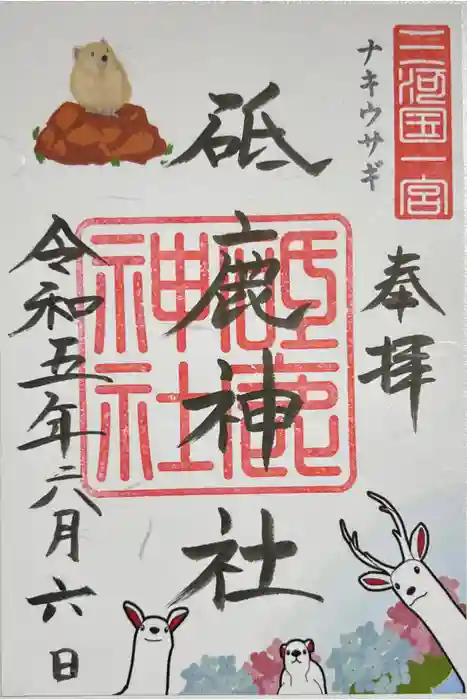 三河国一宮
ナキウサギ
奉拝
砥鹿神社
砥鹿
神社
令和五年六月六日